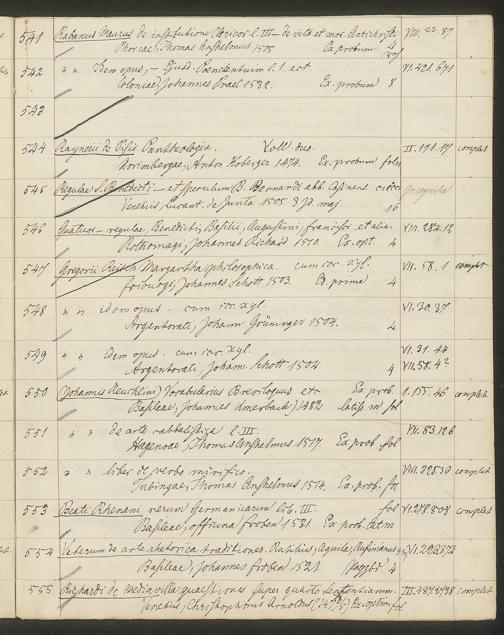 541 Rabanus Maurus de institutione Clericor. l. III – de vita et mor. Antichristi VIII. 22. 87
Phorcae, Thomas Anshelmus 1505 Ex. probum
542 " " Idem opus, – Ejusd. Poenitentium l. 1. ect VI. 421. 671
Coloniae, Johannes Prael 1532. Ex. probum 8
543
544 Raynerii de Pisis Pantheologia. Voll. duo. II. 171. 17 complet
Norimbergae, Anton Koberger 1474. Ex. probum folm
545 Regulae S. Benedicti – et speculum B. Bernardi abb. Casinens Incognita
Venetiis, Lucant. de Junta 1505. maj. 16
546 Quatuor regulae, Benedicti, Basilii, Augustini, francisci et aliae. VIII. 282. 12
Rothomagi, Johannes Richard 1510. Ex. opt. 4
547 Gregorii Reisch Margaritha philosophica. cum ic. xyl. VII. 58. 1 complet
friburgi, Johannes Schott 1503. Ex. prima 4
548 " " idem opus. cum ic. xyl. VI. 30. 37
Argentorati, Johann Grüninger 1504. 4
549 " " idem opus. cum ic. xyl. VI. 31. 44
Argentorati, Joham. Schott 1504 4 VII. 58. 42
550 (Johannis Reuchlini) Vocabularius Breviloquus etc Ex prob. 1. 155. 46 complet
Basileae, Johannes Amerbach) 1482 fol
551 " " de arte cabbalistica l. III. VII. 83. 126
Hagenoae, Thomas Anshelmus 1517. Ex prob. fol
552 " " liber de verbo mirifico. complet
Tubingae, Thomas Anshelmus 1514. Ex. prob. fol
553 Beati Rhenani rerum Germaniarum lib. III. fol complet
Basileae, officina froben 1531. Ex prob
554 Veterum de arte rhetorica traditiones. Rutilius, Aquila, Rufinianus complet
Basileae, Johannes froben 1521. 4
555 Richardi de mediavilla quaestiones super quarto sententiarum. complet
Venetiis, Christophorus Arnoldus Ex. optim. fol